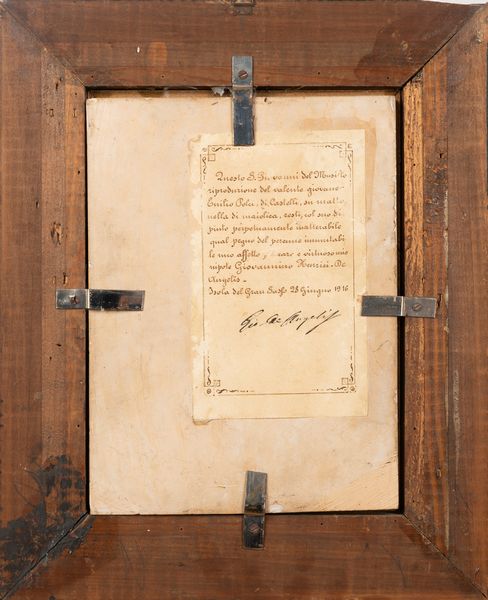 Questo S. Giovanni del Murillo
riproduzione del valente giovane
Emilio Polci, di Castelli, su matto-
nella di maiolica, resti, col suo di-
pinto perpetuamente inalterabile
qual pegno del perenne immutabi-
le mio affetto, caro e virtuoso mio
nipote Giovannino Henrici-De
Angelis-
Isola del Gran Sasso 28 Giugno 1916
De Angelis